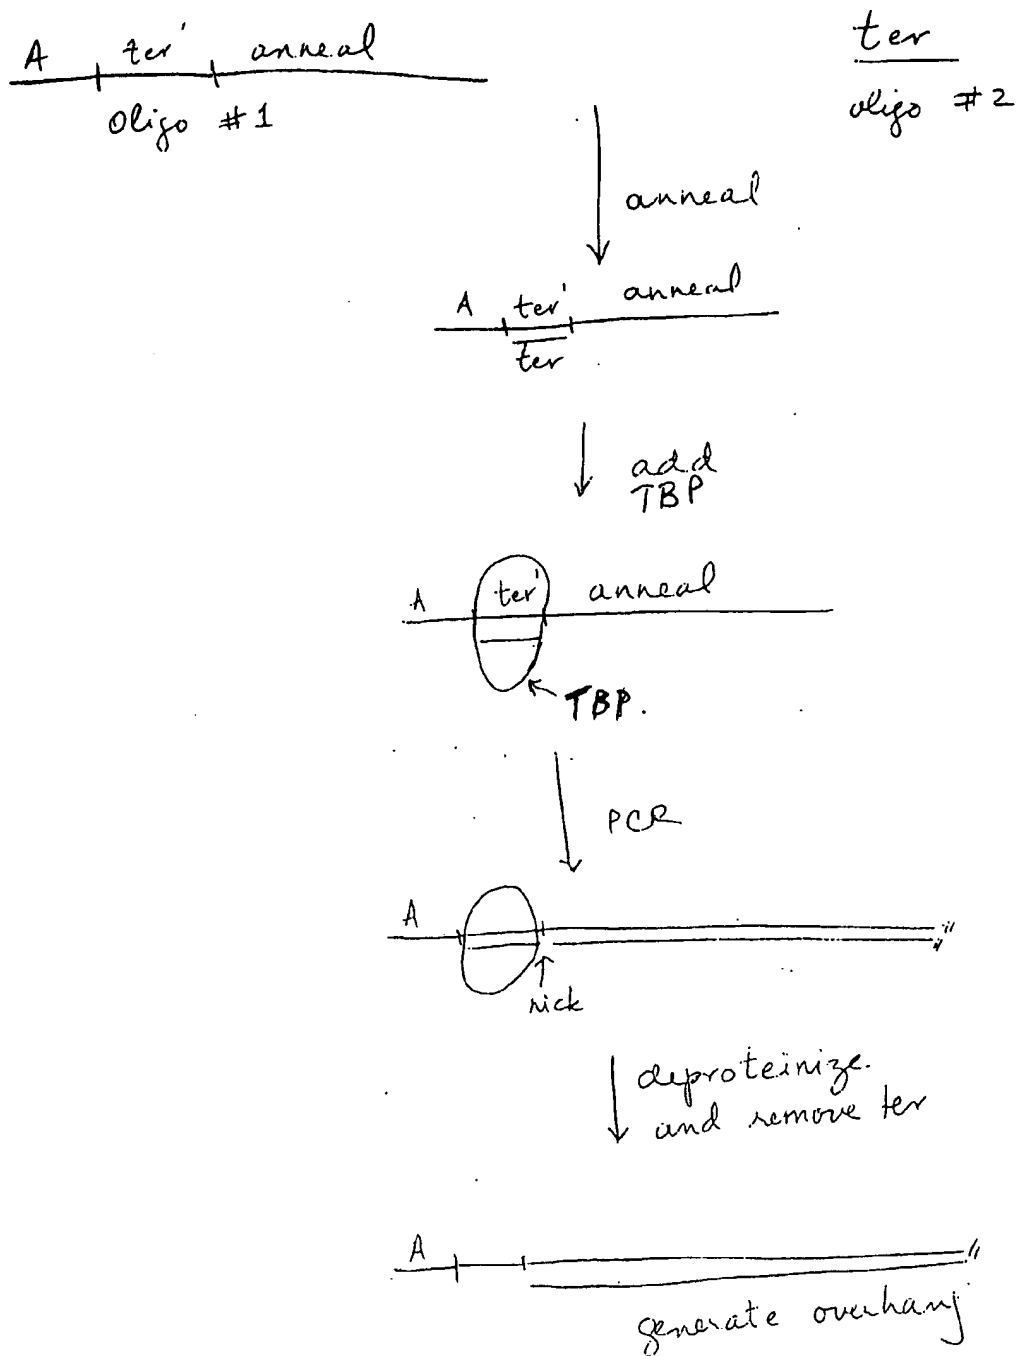 A ter' anneal
Oligo #1
ter
oligo #2
anneal
A ter' anneal
ter
add
TBP
A ter' anneal
TBP.
PCR
A
nick
deproteinize.
and remove ter
A
generate overhang